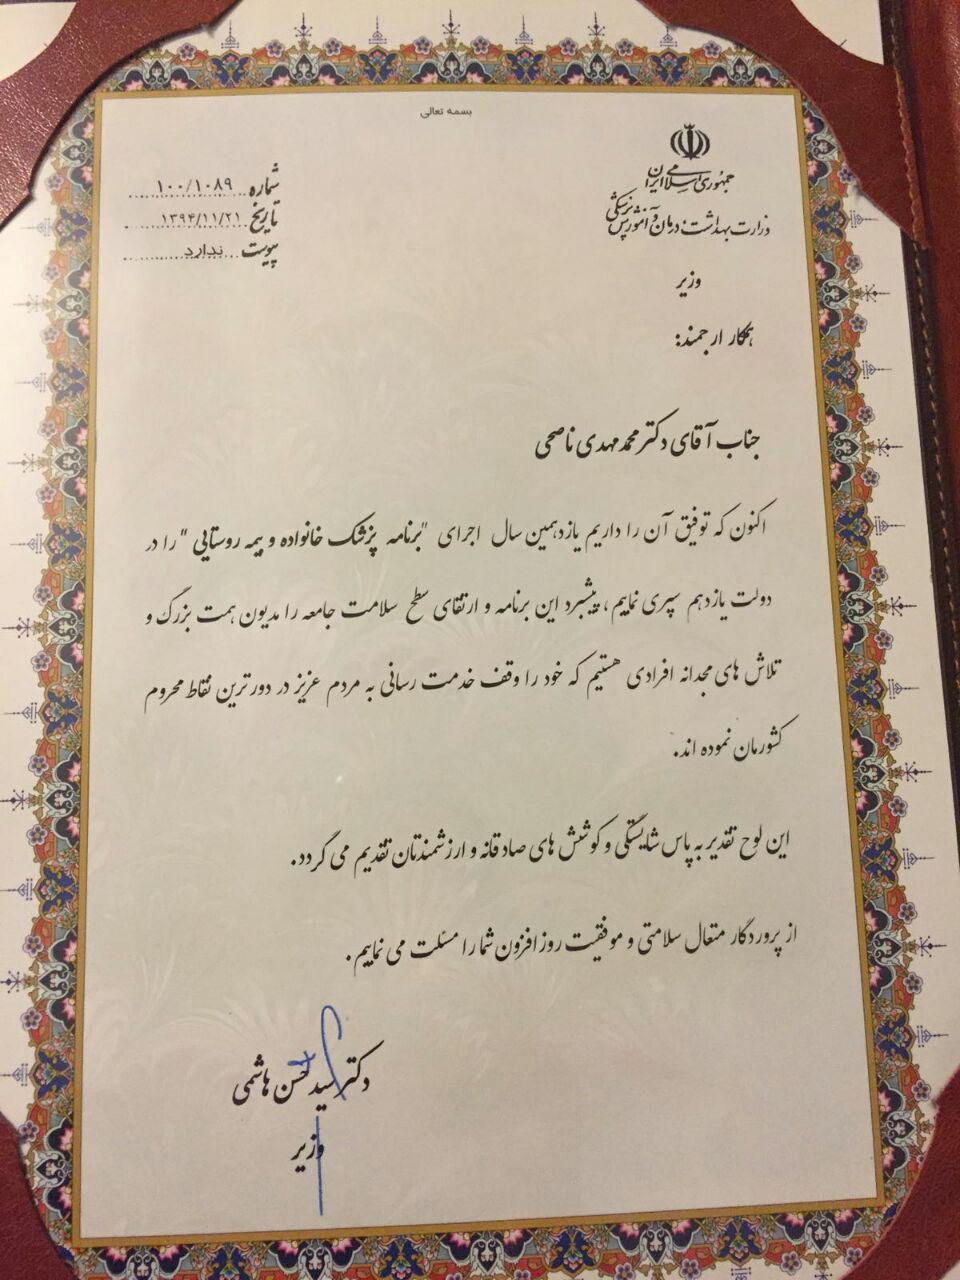 بسمه تعالی
جمهوری اسلامی ایران
وزارت بهداشت، درمان و آموزش پزشکی
وزیر
شماره ۱۰۰/۱۰۸۹
تاریخ ۱۳۹۴/۱۱/۲۱
پیوست ندارد
همکار ارجمند:
جناب آقای دکتر محمد مهدی ناصحی
اکنون که توفیق آن را داریم یازدهمین سال اجرای "برنامه پزشک خانواده و بیمه روستایی" را در
دولت یازدهم سپری نماییم، پیشبرد این برنامه و ارتقای سطح سلامت جامعه را مدیون همت بزرگ و
تلاش های مجدانه افرادی هستیم که خود را وقف خدمت رسانی به مردم عزیز در دورترین نقاط محروم
کشورمان نموده اند.
این لوح تقدیر به پاس شایستگی و کوشش های صادقانه و ارزشمندتان تقدیم می گردد.
از پروردگار متعال سلامتی و موفقیت روزافزون شما را مسئلت می نماییم.
دکتر سید حسن هاشمی
وزیر